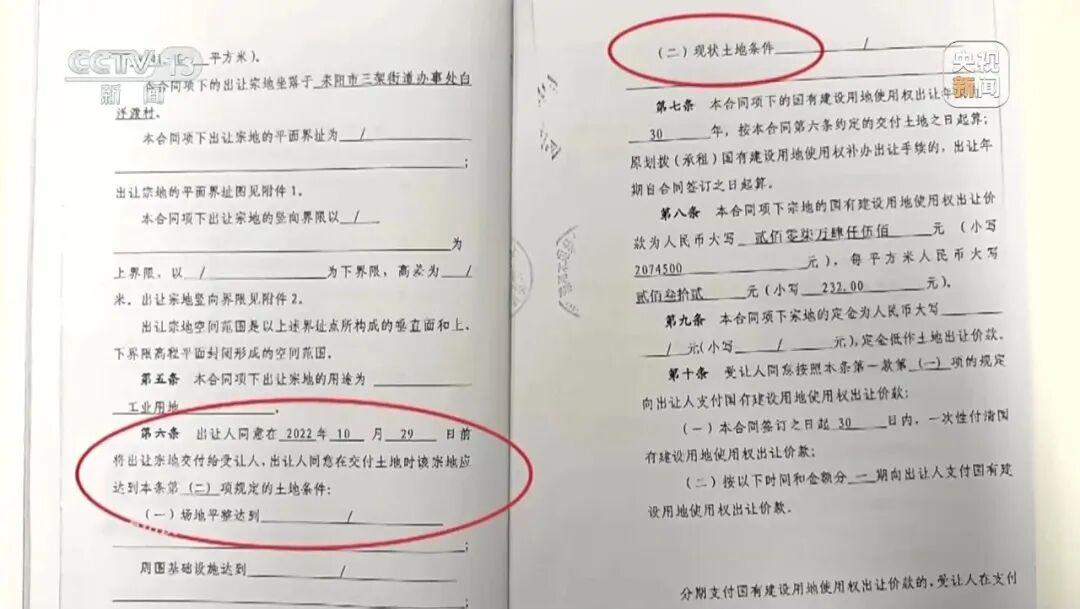 CCTV 13
新闻
央视
新闻
平方米）.
本合同项下的出让宗地坐落于 耒阳市三架街道办事处白
洋渡村.
本合同项下出让宗地的平面界址为 /
;
出让宗地的平面界址图见附件1.
本合同项下出让宗地的竖向界限以 /
为
上界限，以 / 为下界限，高差为 /
米. 出让宗地竖向界限见附件2.
出让宗地空间范围是以上述界址点所构成的垂直面和上、
下界限高程平面封闭形成的空间范围.
第五条 本合同项下出让宗地的用途为
工业用地 .
第六条 出让人同意在 2022 年 10 月 29 日前
将出让宗地交付给受让人，出让人同意在交付土地时该宗地应
达到本条第 (二) 项规定的土地条件:
(一) 场地平整达到 /
;
周围基础设施达到 /
;
(二) 现状土地条件 /
第七条 本合同项下的国有建设用地使用权出让年
30 年，按本合同第六条约定的交付土地之日起算;
原划拨（承租）国有建设用地使用权补办出让手续的，出让年
期自合同签订之日起算.
第八条 本合同项下宗地的国有建设用地使用权出让价
款为人民币大写 贰佰零柒万肆仟伍佰 元（小写
2074500 元），每平方米人民币大写
贰佰叁拾贰 元（小写 232.00 元）.
第九条 本合同项下宗地的定金为人民币大写
/ 元（小写 / 元），定金抵作土地出让价款.
第十条 受让人同意按照本条第一款第 (一) 项的规定
向出让人支付国有建设用地使用权出让价款:
(一) 本合同签订之日起 30 日内，一次性付清国
有建设用地使用权出让价款;
(二) 按以下时间和金额分 一 期向出让人支付国有建
设用地使用权出让价款.
分期支付国有建设用地使用权出让价款的，受让人在支付